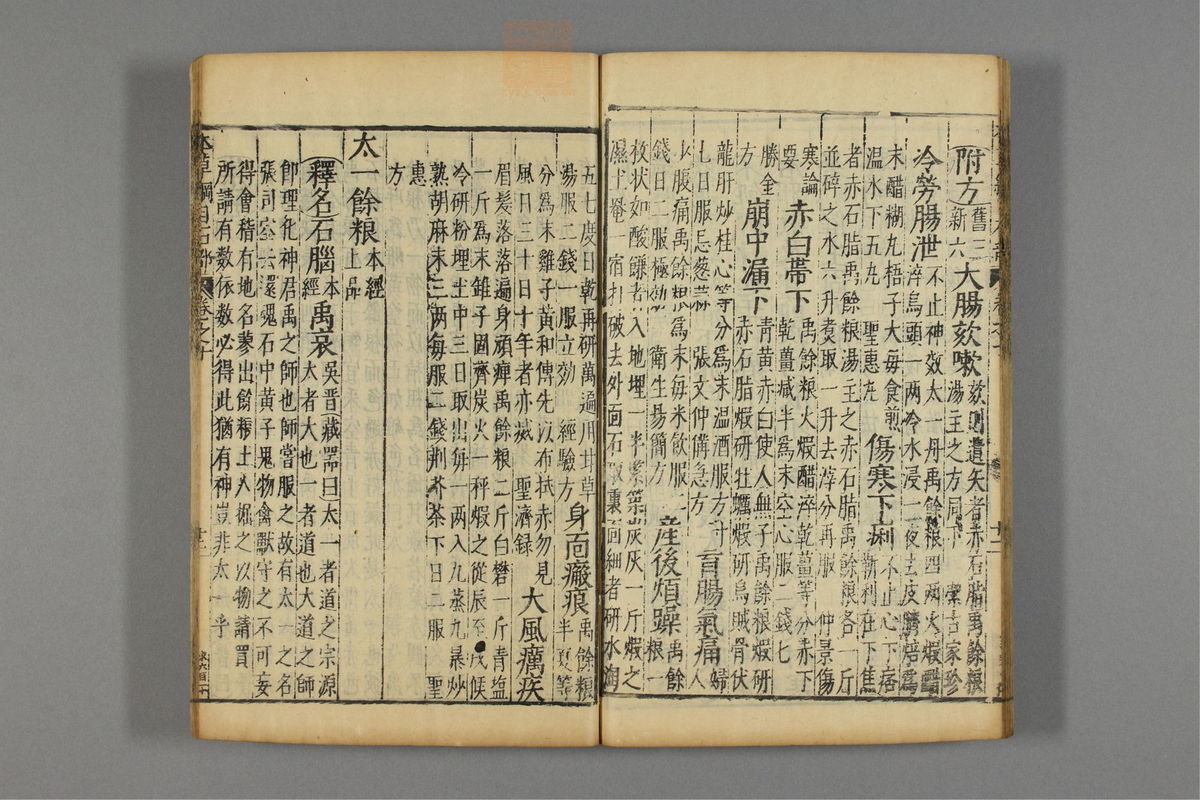 附方舊三新六大腸欬嗽欬則遺矢者赤石脂禹餘粮湯主之方同下 潔古家珍
冷勞腸泄不止神效太一丹禹餘粮四兩火煅醋淬烏頭一兩冷水浸一夜去皮臍焙爲
末醋糊丸梧子大每食前温水下五丸 聖惠方傷寒下痢不止心下痞硬利在下焦
者赤石脂禹餘粮湯主之赤石脂禹餘粮各一斤並碎之水六升煮取二升去滓分再服 仲景傷
寒論要赤白帶下禹餘粮火煅醋淬乾薑等分赤下乾薑減半爲末空心服二錢七
勝金方崩中漏下青黄赤白使人無子禹餘粮煅研赤石脂煅研牡蠣煅研烏賊骨伏
龍肝炒桂心等分爲末温酒服方寸匕日服忌葱蒜 張文仲備急方育腸氣痛婦人
少腹痛禹餘粮爲末每米飲服二錢日二服極効 衛生易簡方産後煩躁禹餘粮一
枚狀如酸𩜾者入地埋一半緊築炭灰一斤煅之濕土罨一宿打破去外面石取裏面細者研水淘
五七度日乾再研萬遍用甘草湯服二錢一服立効 經驗方身面瘢痕禹餘粮半夏等
分爲末雞子黄和傅先以布拭赤勿見風日三十日十年者亦滅 聖濟録大風癘疾
眉髮落落遍身頑痺禹餘粮二斤白礬一斤青塩一斤爲末罐子固濟炭火一秤煅之從辰至戌候
冷研粉埋土中三日取出每一兩入九蒸九暴炒熟胡麻末三兩每服二錢荆芥茶下日二服 聖
惠方
太一餘粮本經上品
釋名石腦本經禹哀吳晋藏器曰太一者道之宗源太者大也一者道也大道之師
卽理化神君禹之師也師嘗服之故有太一之名張司空云還魂石中黄子鬼物禽獸守之不可妄
得會稽有地名蓼出餘粮土人掘之以物請買所請有數依數必得此猶有神豈非太一乎
本草綱目石部 卷之十 廿二